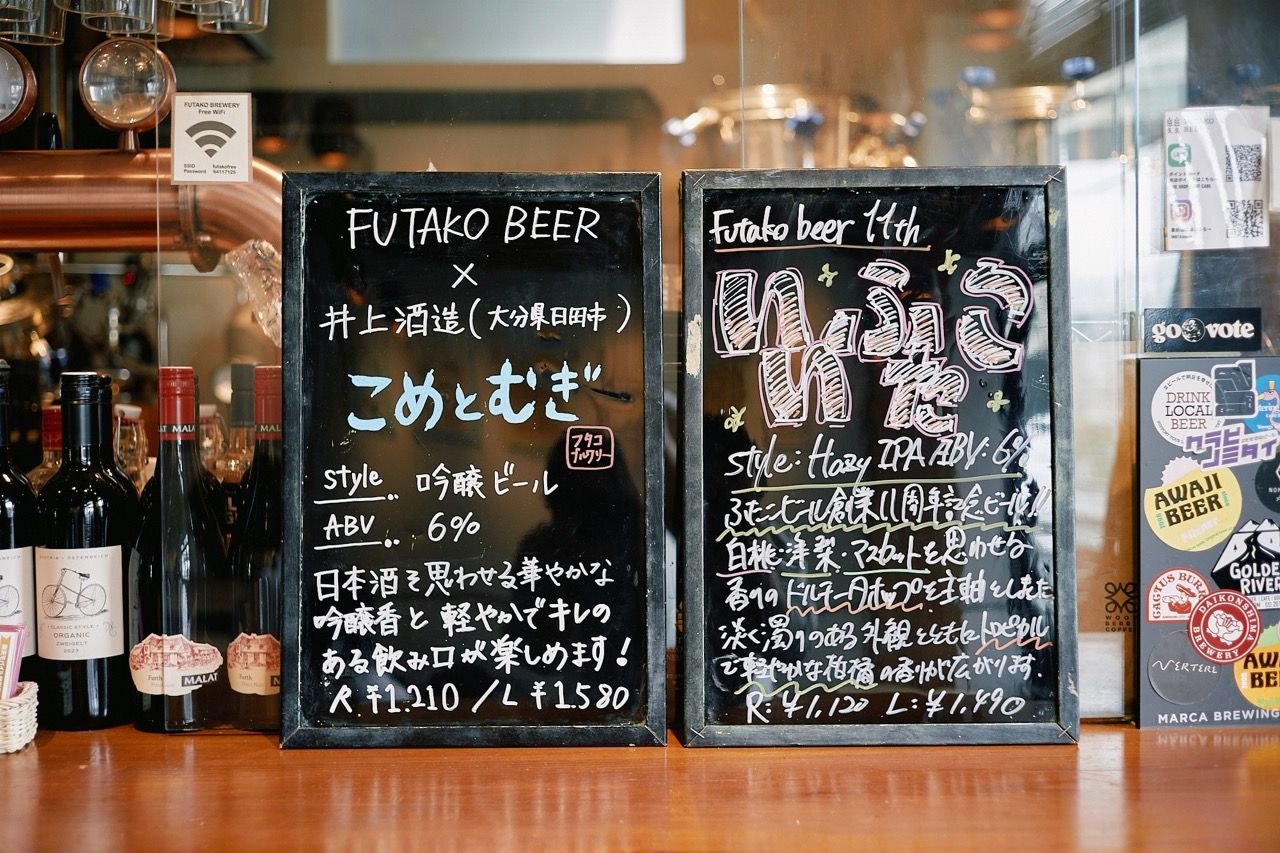 FUTAKO BREWERY
Free WiFi
SSID futakofree
Password 64117125
FUTAKO BEER
×
井上酒造(大分県日田市)
こめとむぎ
フタコ
ブルワリー
style 吟醸ビール
ABV 6%
日本酒を思わせる華やかな
吟醸香と軽やかでキレの
ある飲み口が楽しめます!
R ¥1.210 / L ¥1.580
Futako beer 11th
style: Hazy IPA ABV: 6%
ふたこビール創業11周年記念ビール!!
白桃・洋梨・マスカットを思わせる
香りの ホップを主軸とした
淡く濁りのある外観とともにトロピカル
で軽やかな柑橘の香りが広がります.
R: ¥1,120 L: ¥1,490
CLASSIC STYLE
ORGANIC
ZWEIGELT
2023
MALAT
Furth
MALAT
Furth
go vote
DRINK
LOCAL
BEER
クラビ
コミタイ
AWAJI
BEER
Pilsner
GOLDEN
RIVER
CACTUS BURN
DAIKONSHIMA
BREWERY
VERTERE
AWAJI
BEER
MARCA BREWING